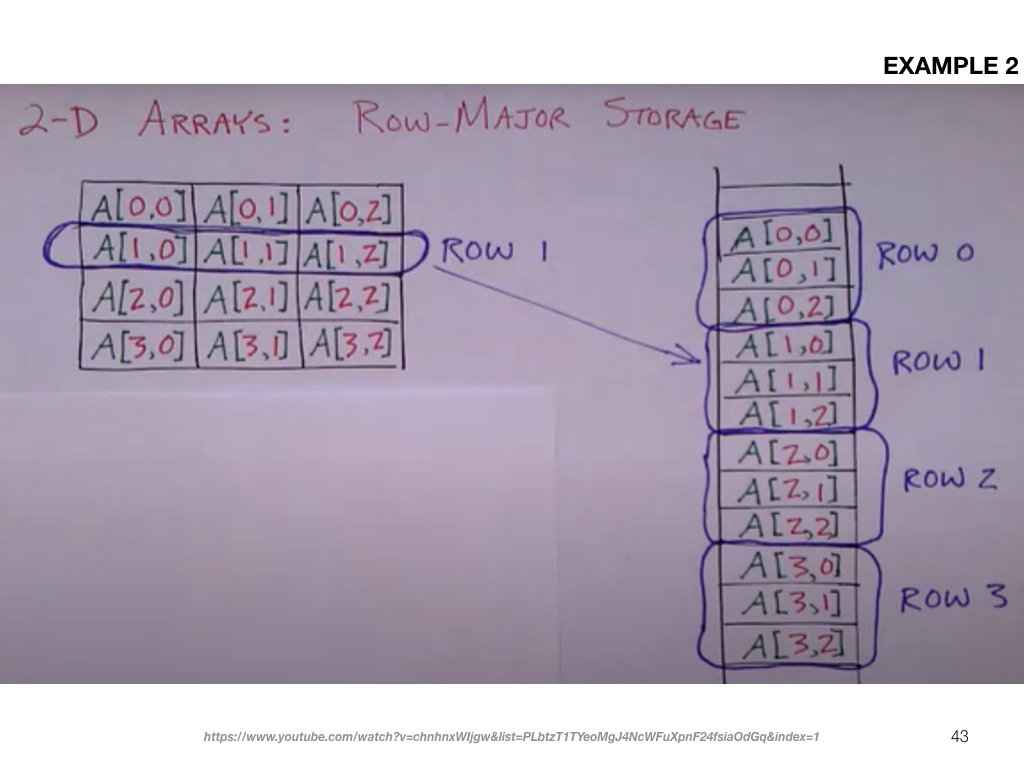 EXAMPLE 2
2-D ARRAYS: ROW-MAJOR STORAGE
A[0,0] A[0,1] A[0,2]
A[1,0] A[1,1] A[1,2] ROW 1
A[2,0] A[2,1] A[2,2]
A[3,0] A[3,1] A[3,2]
A[0,0]
A[0,1]
A[0,2]
ROW 0
A[1,0]
A[1,1]
A[1,2]
ROW 1
A[2,0]
A[2,1]
A[2,2]
ROW 2
A[3,0]
A[3,1]
A[3,2]
ROW 3
https://www.youtube.com/watch?v=chnhnxWIjgw&list=PLbtzT1TYeoMgJ4NcWFuXpnF24fsiaOdGq&index=1
43